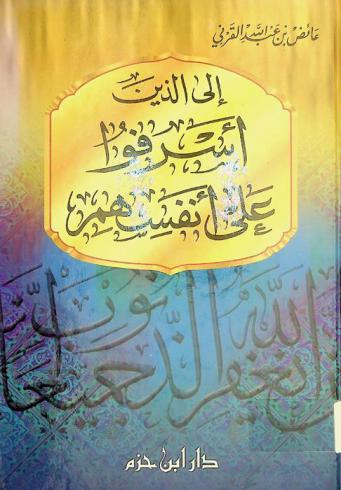 عائض بن عبد الله القرني
إلى الذين
أسرفوا
على أنفسهم
إن الله يغفر الذنوب جميعا
دار ابن حزم